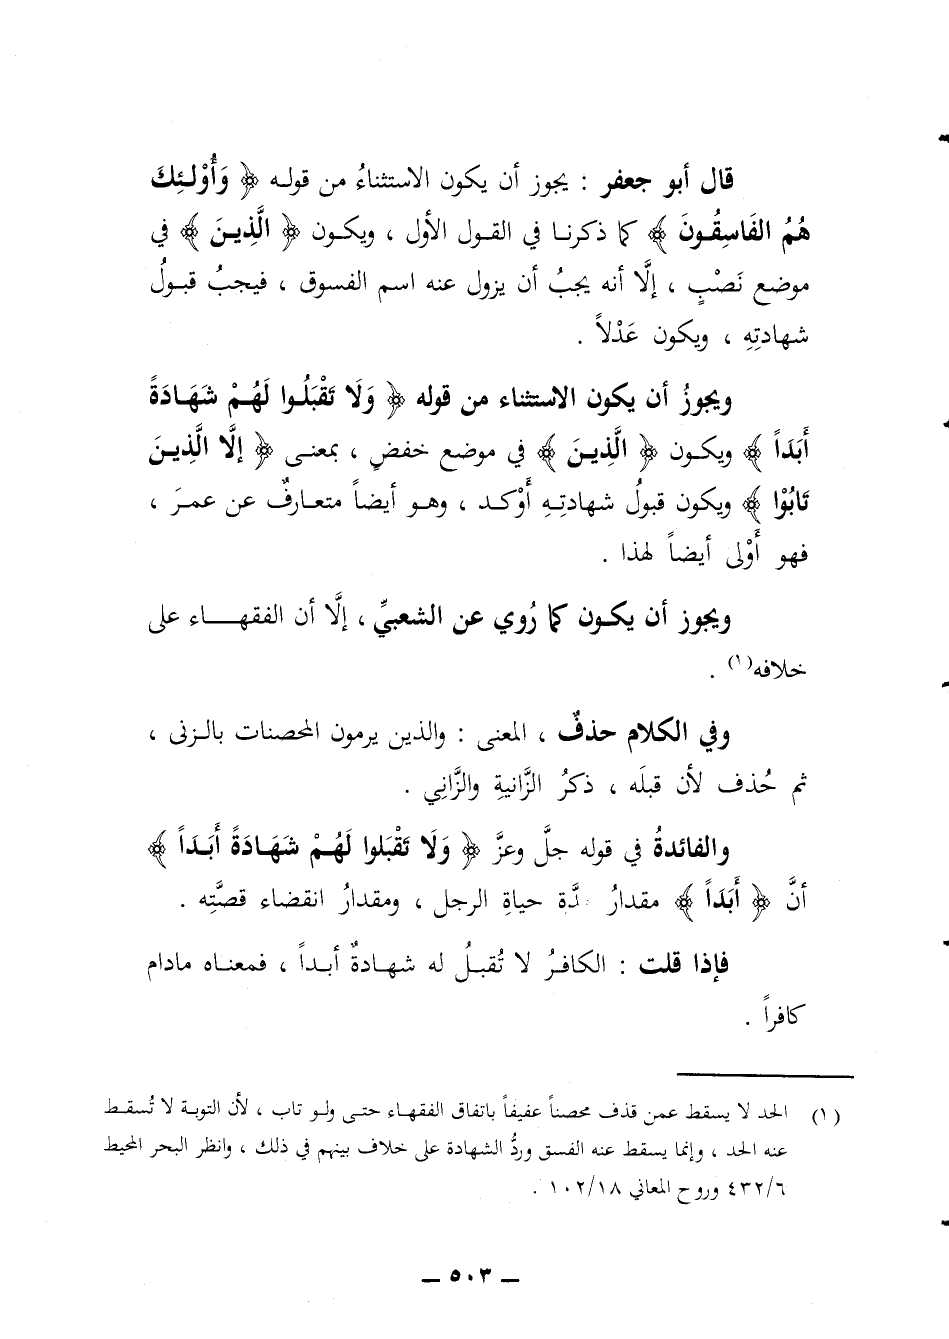 قال أبو جعفر : يجوز أن يكون الاستثناءُ من قولـه ﴿ وَأُوْلـئِكَ
هُمُ الفَاسِقُـونَ ﴾ كما ذكرنـا في القـول الأول ، ويكـون ﴿ الَّذِيـنَ ﴾ في
موضـع نَصْبٍ ، إلَّا أنـه يجبُ أن يزول عنه اسـم الفسـوق ، فيجبُ قبـولُ
شهادتِهِ ، ويكون عَدْلاً .
ويجوزُ أن يكون الاستثناء من قوله ﴿ وَلَا تَقْبَلُـوا لَهُـمْ شَهَـادَةً
أَبَدَاً ﴾ ويكـون ﴿ الَّذِينَ ﴾ في موضع خفـضٍ ، بمعنـى ﴿ إلَّا الَّذِيـنَ
تَابُوْا ﴾ ويكون قبولُ شهادتِـهِ أَوْكـد ، وهـو أيضـاً متعـارفٌ عن عمـرَ ،
فهو أَوْلى أيضاً لهذا .
ويجوز أن يكـون كما رُوي عن الشعبيِّ ، إلَّا أن الفقهـــاء على
خلافه(١) .
وفي الكلام حذفٌ ، المعنى : والذين يرمون المحصنات بالـزنى ،
ثم حُذف لأن قبلَه ، ذكرُ الزَّانيةِ والزَّانِي .
والفائدةُ في قوله جلَّ وعزَّ ﴿ وَلَا تَقْبَلوا لَهُـمْ شَهَـادَةً أَبَـدَاً ﴾
أنَّ ﴿ أَبَدَاً ﴾ مقدارُ دَّة حياةِ الرجل ، ومقدارُ انقضاء قصتَّه .
فإذا قلت : الكافـرُ لا تُقبـلُ له شهـادةٌ أبـداً ، فمعنـاه مادام
كافراً .
(١) الحد لا يسقط عمن قذف محصناً عفيفاً باتفاق الفقهـاء حتـى ولـو تاب ، لأن التوبـة لا تُسقـط
عنه الحد ، وإنما يسقط عنه الفسق وردُّ الشهادة على خلاف بينهم في ذلك ، وانظر البحر المحيط
٤٣٢/٦ وروح المعاني ١٠٢/١٨ .
ــ ٥٠٣ ــ